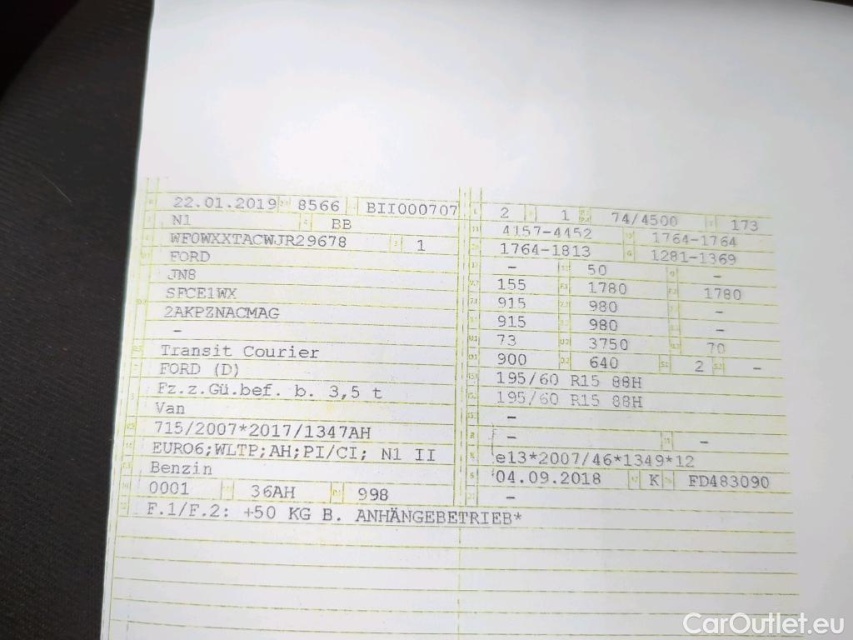 22.01.2019 8566 BII000707
N1 BB
WF0WXXTACWJR29678 1
FORD
JN8
SFCE1WX
2AKPZNACMAG
–
Transit Courier
FORD (D)
Fz.z.Gü.bef. b. 3,5 t
Van
715/2007*2017/1347AH
EURO6;WLTP;AH;PI/CI; N1 II
Benzin
0001 36AH 998
F.1/F.2: +50 KG B. ANHÄNGEBETRIEB*
2 1 74/4500 173
4157-4452 1764-1764
1764-1813 1281-1369
– 50 –
155 1780 1780
915 980 –
915 980 –
73 3750 70
900 640 2 –
195/60 R15 88H
195/60 R15 88H
–
– –
e13*2007/46*1349*12
04.09.2018 K FD483090
–
CarOutlet.eu